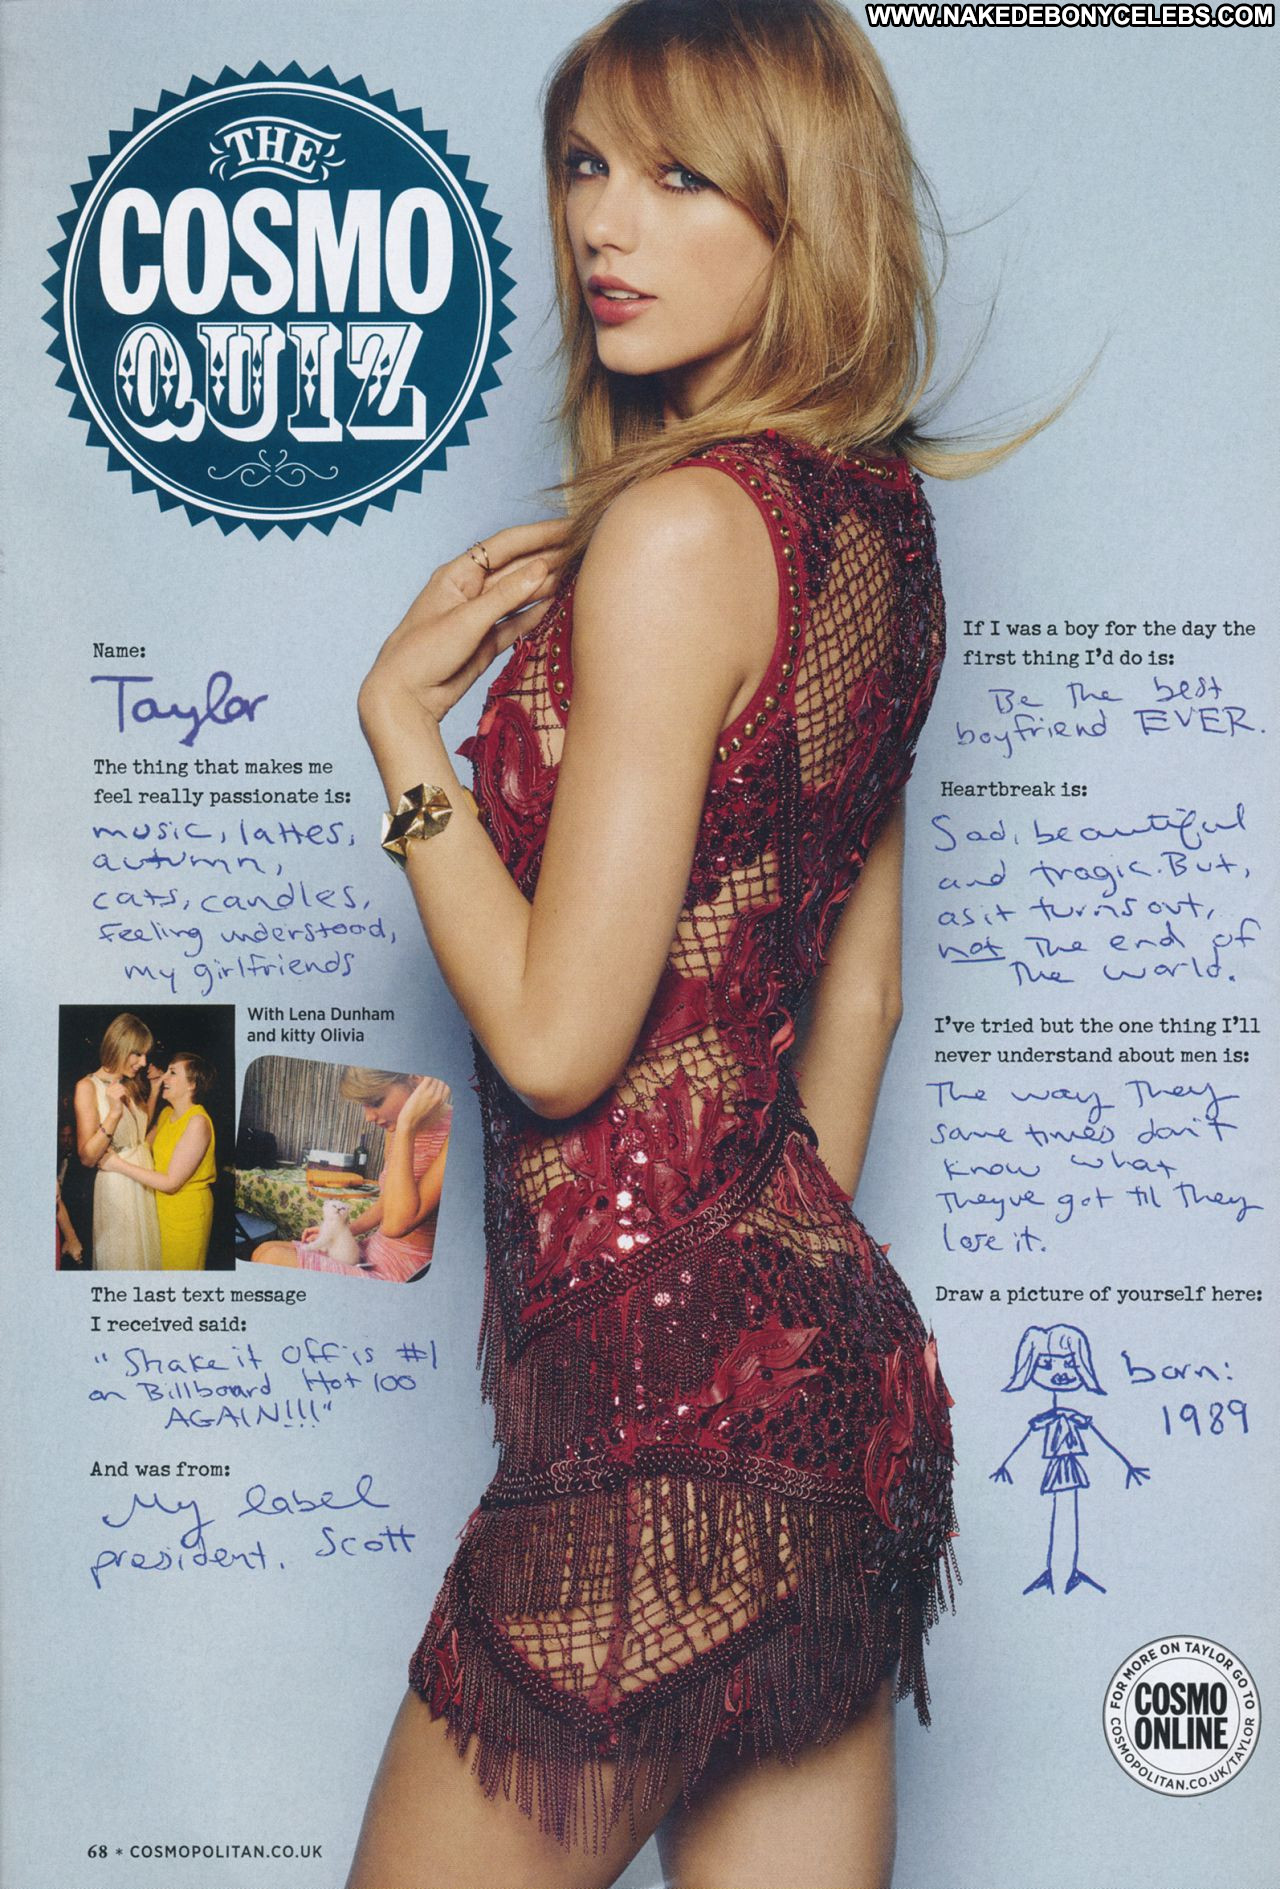 WWW.NAKEDEBONYCELEBS.COM
THE
COSMO
QUIZ
Name:
Taylor
The thing that makes me
feel really passionate is:
music, lattes,
autumn,
cats, candles,
feeling understood,
my girlfriends
With Lena Dunham
and kitty Olivia
The last text message
I received said:
"Shake it Off is #1
on Billboard Hot 100
AGAIN!!!"
And was from:
My label
president, Scott
If I was a boy for the day the
first thing I'd do is:
Be the best
boyfriend EVER.
Heartbreak is:
Sad, beautiful
and tragic. But,
as it turns out,
not the end of
the world.
I've tried but the one thing I'll
never understand about men is:
The way they
sometimes don't
know what
they've got til they
lose it.
Draw a picture of yourself here:
born:
1989
FOR MORE ON TAYLOR GO TO
COSMO
ONLINE
COSMOPOLITAN.CO.UK/TAYLOR
68 * COSMOPOLITAN.CO.UK